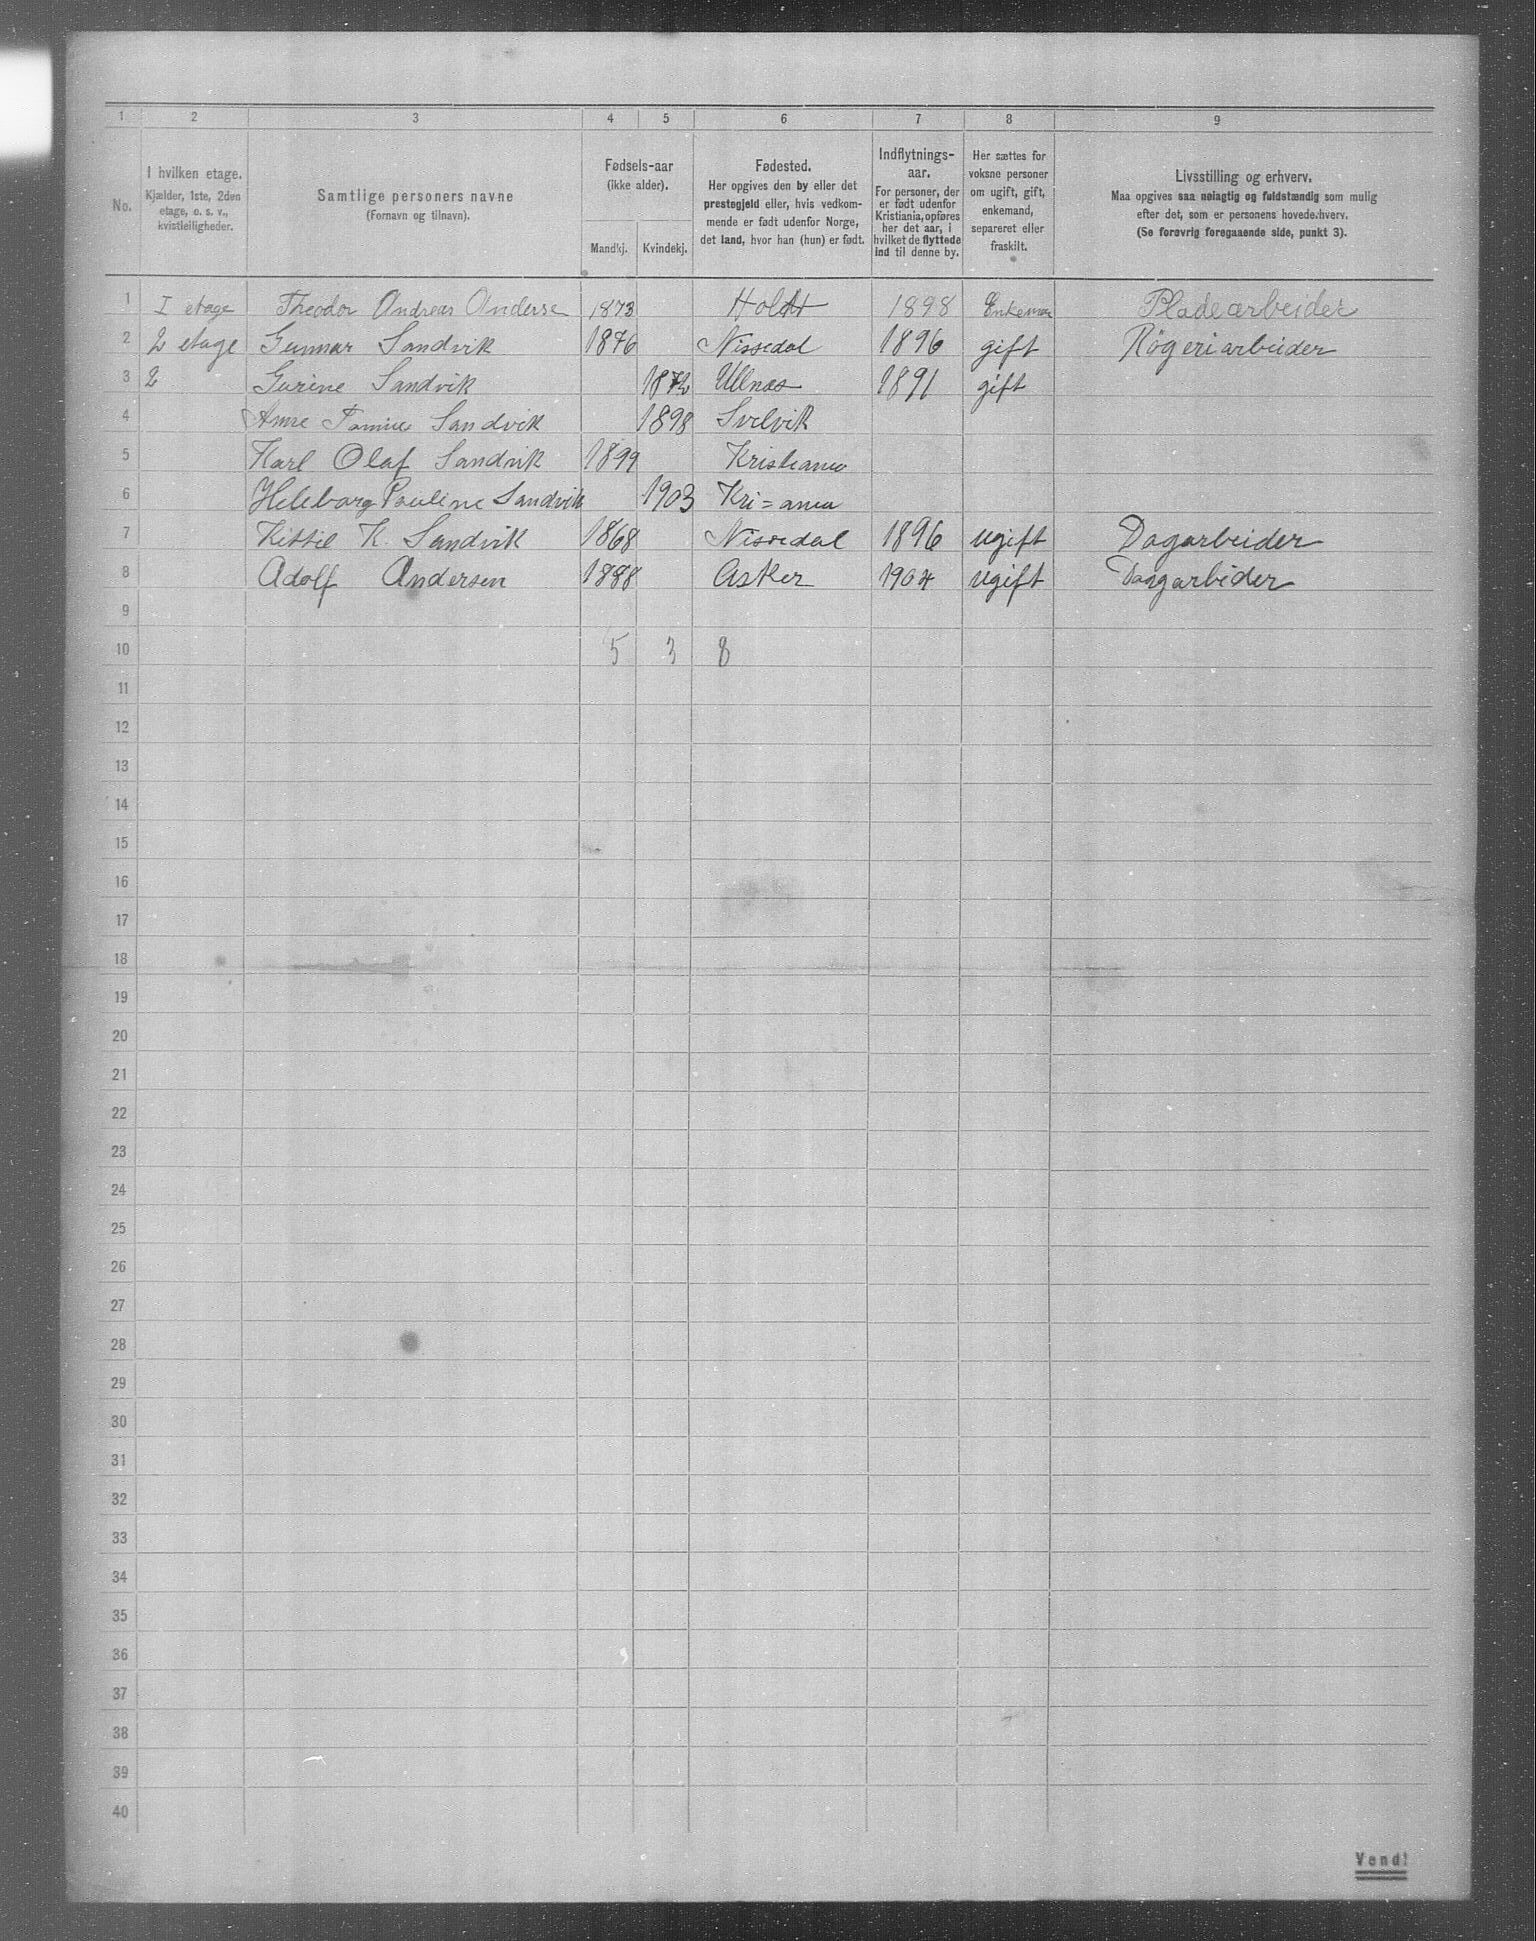 1 2 3 4 5 6 7 8 9
No.
I hvilken etage.
Kjælder, 1ste, 2den
etage, o. s. v.,
kvistleiligheder.
Samtlige personers navne
(Fornavn og tilnavn).
Fødsels-aar
(ikke alder).
Mandkj. Kvindekj.
Fødested.
Her opgives den by eller det
prestegjeld eller, hvis vedkom-
mende er født udenfor Norge,
det land, hvor han (hun) er født.
Indflytnings-
aar.
For personer, der
er født udenfor
Kristiania, opføres
her det aar, i
hvilket de flyttede
ind til denne by.
Her sættes for
voksne personer
om ugift, gift,
enkemand,
separeret eller
fraskilt.
Livsstilling og erhverv.
Maa opgives saa nøiagtig og fuldstændig som mulig
efter det, som er personens hovederhverv.
(Se forøvrig foregaaende side, punkt 3).
1 I etage Theodor Andreas Anderse 1873 Holdt 1898 Enkeman Pladearbeider
2 2 etage Gunnar Sandvik 1876 Nissedal 1896 gift Røgeriarbeider
3 2 Gurine Sandvik Ullnæs 1891 gift
4 Anne Sandvik 1898 Svelvik
5 Karl Olaf Sandvik 1899 Kristiania
6 Helborg Pauline Sandvik 1903 Kri=ania
7 Kittil K. Sandvik 1868 Nissedal 1896 ugift Dagarbeider
8 Adolf Andersen 1888 Asker 1904 ugift Daagarbeider
9
10 5 3 8
11
12
13
14
15
16
17
18
19
20
21
22
23
24
25
26
27
28
29
30
31
32
33
34
35
36
37
38
39
40
Vend!